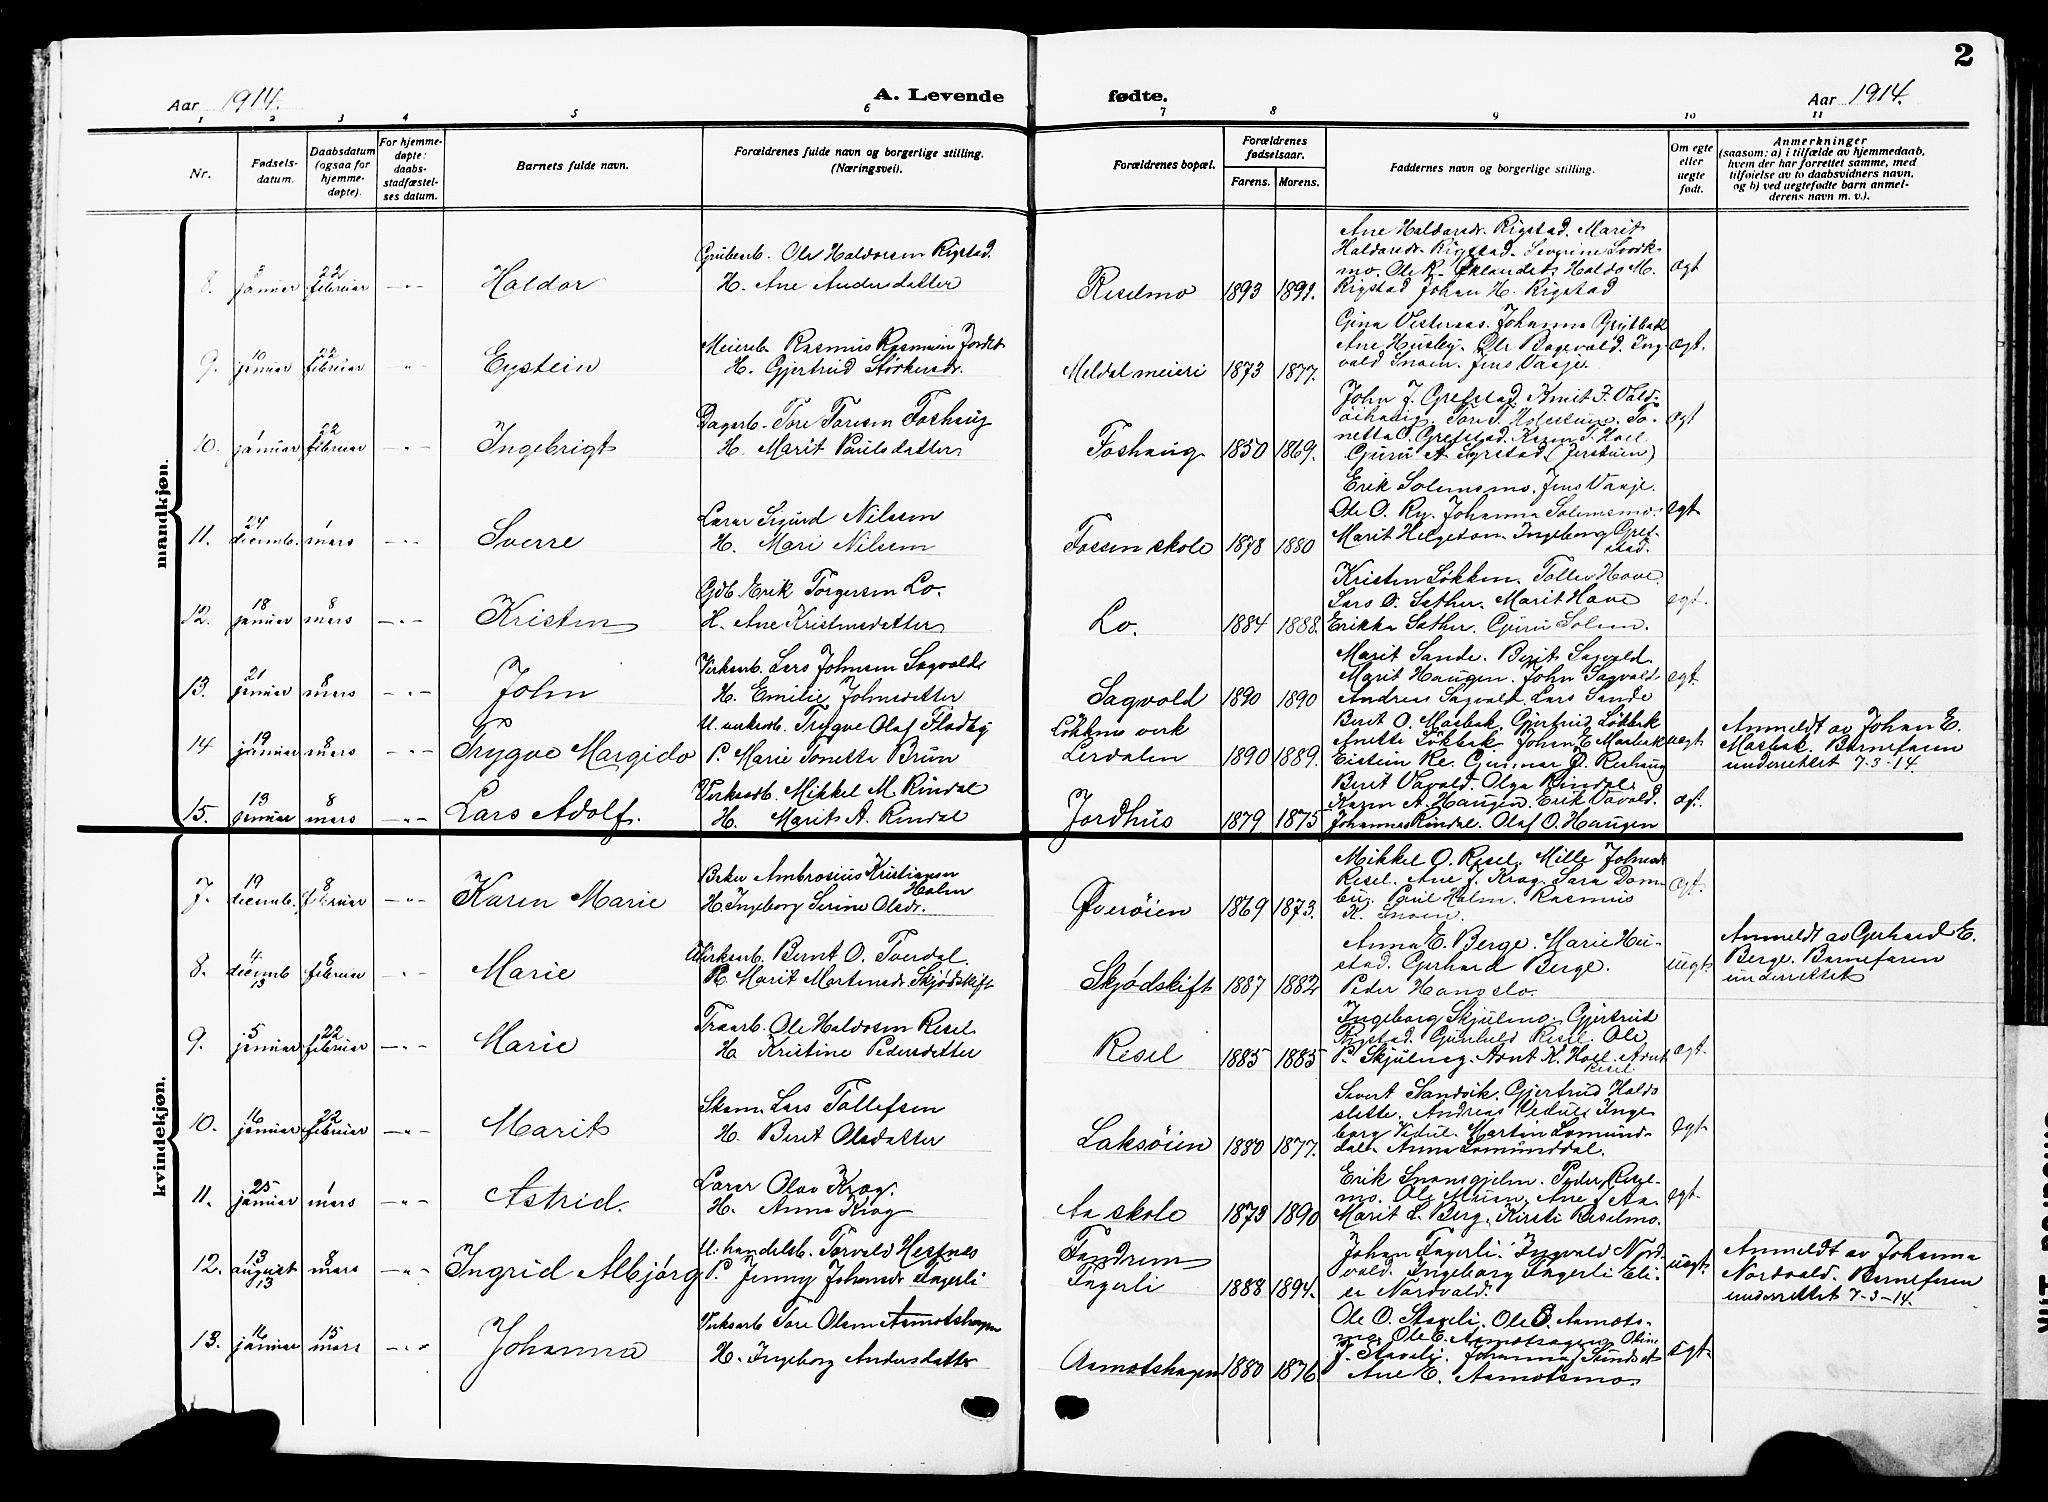 2
Aar 1914.
A. Levende
fødte.
Aar 1914.
1 2 3 4 5 6 7 8 9 10 11
Nr.
Fødsels-
datum.
Daabsdatum
(ogsaa for
hjemme-
døpte).
For hjemme-
døpte:
daabs-
stadfæstel-
ses datum.
Barnets fulde navn.
Forældrenes fulde navn og borgerlige stilling.
(Næringsvei).
Forældrenes bopæl.
Forældrenes
fødselsaar.
Farens. Morens.
Faddernes navn og borgerlige stilling.
Om egte
eller
uegte
født.
Anmerkninger
(saasom: a) i tilfælde av hjemmedaab,
hvem der har forrettet samme, med
tilføielse av to daabsvidners navn,
og b) ved uegtefødte barn anmel-
derens navn m. v.).
mandkjøn.
8. 3 januar 22 februar -"- Haldor
Grubearb. Ole Haldorsen Rigstad.
H. Ane Andersdatter
Reselmo 1893 1891.
Ane Haldorsdr. Rigstad. Marit
Haldorsdr. Rigstad. Severine Svork-
mo. Ole K. Haldo M.
Rigstad Johan H. Rigstad
egt
9. 10 januar 22 februar " Eystein
Meierib. Rasmus Rasmussen Jordet
H. Gjertrud Størkersdr.
Meldal meieri 1873 1877.
Gina Vesteraas. Johanna Grytbak
Ane Husby. Ole Bagevold. Ing-
vald Snoen. Jens Vaaje.
egt.
10. 1 januar 22 februar -"- Ingebrigt
Dagarb. Tore Toresen Foshaug
H. Marit Paulsdatter
Foshaug 1850 1869.
John J. Grefstad. Knut F. Vold-
øihaug. Tore T. Holestuen. To-
netta O. Grefstad. Karen T. Hoel
Guru A. Syrstad (Jerstuen)
egt
11. 24 decemb. 1 mars -"- Sverre
Lærer Sigurd Nilssen
H. Mari Nilssen
Fossen skole 1878 1880
Erik Solemsmo. Jens Vaaje.
Ole O. Ry. Johanna Solemsmo.
Marit Helgeton. Ingeborg Gref-
stad.
egt
12. 18 januar 8 mars -"- Kristen
Gdb. Erik Torgersen Lo.
H. Ane Kristensdatter
Lo. 1884 1888.
Kristen Løkken. Tollev Hove.
Lars O. Sæther. Marit Hove
Erikka Sæther. Guru Solem.
egt.
13. 21 januar 8 mars -"- John
Verksarb. Lars Johnsen Sagvold
H. Emilie Johnsdatter
Sagvold 1890 1890
Marit Sande. Berit Sagvold.
Marit Haugen. John Sagvold.
Andreas Sagvold. Lars Sande
egt.
14 19 januar 8 mars -"- Trygve Margido
U. verksarb. Trygve Olaf Fladby
P. Marie Tonetta Brun
Løkkens verk
Lerdalen 1890 1889.
Berit O. Mosbak. Gjertrud Løkbak
Anette Løkbak. Johan E. Mosbak
Eistein Re. Gunnar O. Reshaug
uegt
Anmeldt av Johan E.
Mosbak. Barnefaren
underrettet 7-3-14.
15. 13 januar 8 mars -"- Lars Adolf.
Verksarb. Mikkel M. Rindal
H. Marit A. Rindal
Jordhus 1879 1875
Berit Vavold. Olga Rindal.
Karen A. Haugen. Erik Vavold.
Johannes Rindal. Olaf O. Haugen
egt.
kvindekjøn.
7. 19 decemb. 8 februar -"- Karen Marie
Baker Ambrosius Kristiansen
Holm
H. Ingeborg Serine Olsdr.
Øverøien 1869 1873.
Mikkel O. Resel. Mille Johnsdr
Resel. Ane J. Krog. Sara Dom-
bu. Paul Holm. Rasmus
K. Snoen.
egt.
8. 4 decemb 13 8 februar -"- Marie
Verksarb. Bernt O. Tverdal.
P. Marit Mortensdr. Skjødskift
Skjødskift 1887 1882
Anna E. Berge. Marie Hu-
stad. Gerhard Berge.
Peder Hongslo.
uegt
Anmeldt av Gerhard E.
Berge. Barnefaren
underrettet
9. 5 januar 22 februar -"- Marie
Traarb. Ole Haldosen Resel.
H. Kristine Pedersdatter
Resel 1885 1885
Ingeborg Skjuling. Gjertrud
Rigstad. Gunhild Resel. Ole
P. Skjuling. Arnt K. Hoel. Arnt
Resel.
egt.
10. 16 januar 22 februar -"- Marit
Skom. Lars Tollefsen
H. Berit Olsdatter
Laksøien 1880 1877.
Sivert Sandvik. Gjertrud Halds
slette. Andreas Vedul. Inge
borg Vidul. Martin Lomund-
dal. Anna Lomunddal.
egt.
11. 25 januar 1 mars -"- Astrid.
Lærer Olav Krog.
H. Anna Krog
Aa skole 1873 1890
Erik Snausgjelm. Peder Resel-
mo. Ole Muan. Ane J. Aa.
Marit L. Berg. Kirsti Reselmo.
egt.
12. 13 august 13 8 mars -"- Ingrid Albjørg
U. handelsb. Torvald Hestnes
P. Jenny Johansdr. Ingerli
Fandrem
Ingerli 1888 1894.
Johan Ingerli. Ingvald Nord
vald. Ingeborg Ingerli Eli-
se Nordvald.
uegt.
Anmeldt av Johanna
Nordvald. Barnefaren
underrettet 7-3-14.
13. 16 januar 15 mars -"- Johanna
Verksarb Tore Olsen Aamotshagen
H. Ingeborg Andersdatter
Aamotshagen 1880 1876.
Ole O. Stavli. Ole B. Aamots-
mo. Ole E. Aamotshagen. Oline
J. Stavli. Johanna J. Tundset
Ane E. Aamotsmo.
egt.